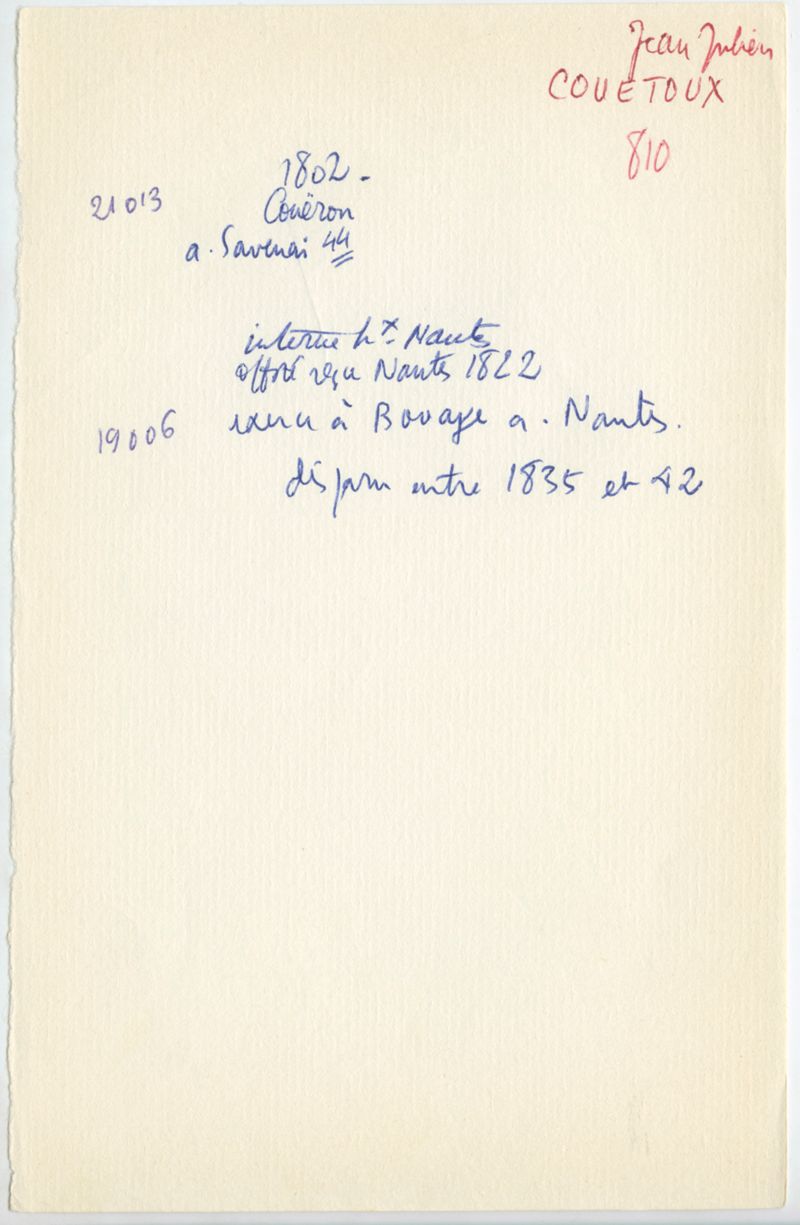 Jean Julien
COUETOUX
810
1802 -
21013
Couëron
a. Savenai 44
interne hx Nantes
offsté reçu Nantes 1822
19006 exerce à Bouaye a. Nantes.
disparu entre 1835 et 42